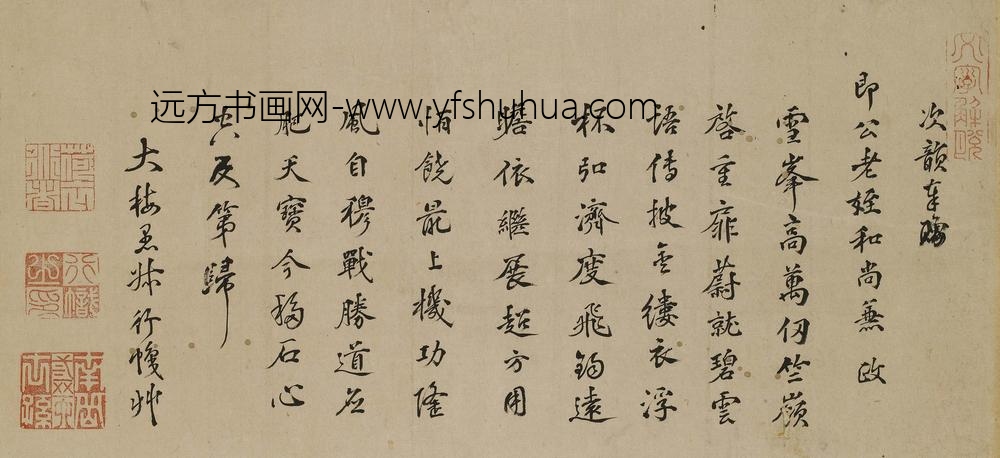 次韻奉酬
即公老姪和尚兼政
雪峯高萬仞竺嶺
啓重扉蔚就碧雲
悟傳披金縷衣浮
杯弘濟度飛錫遠
瞻依繼展超方用
饒最上機功隆
風自穆戰勝道
肥天寶今移石心
共友第歸
大梅愚叔行幟艸
远方书画网-www.yfshuhua.com